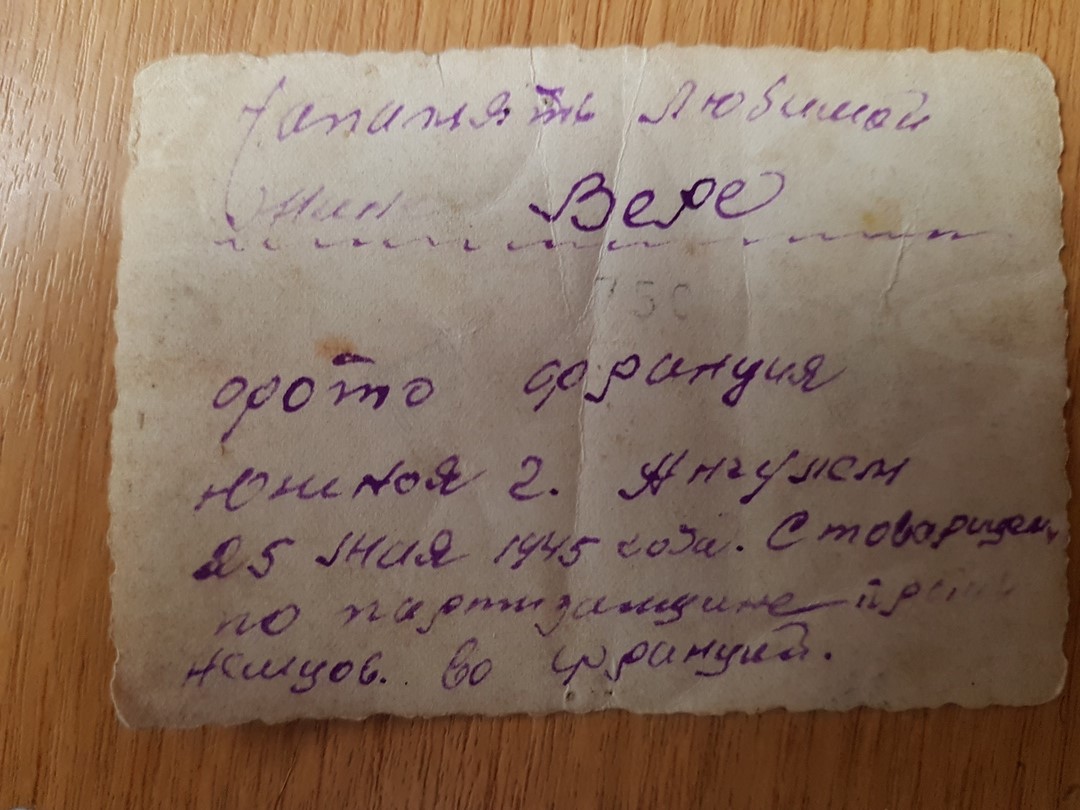 Напамять Любимой
Вере
750
фото франция
Южная г. Ангулем
25 мая 1945 года. С товарищем
по партизанщине
немцов. во Франций.